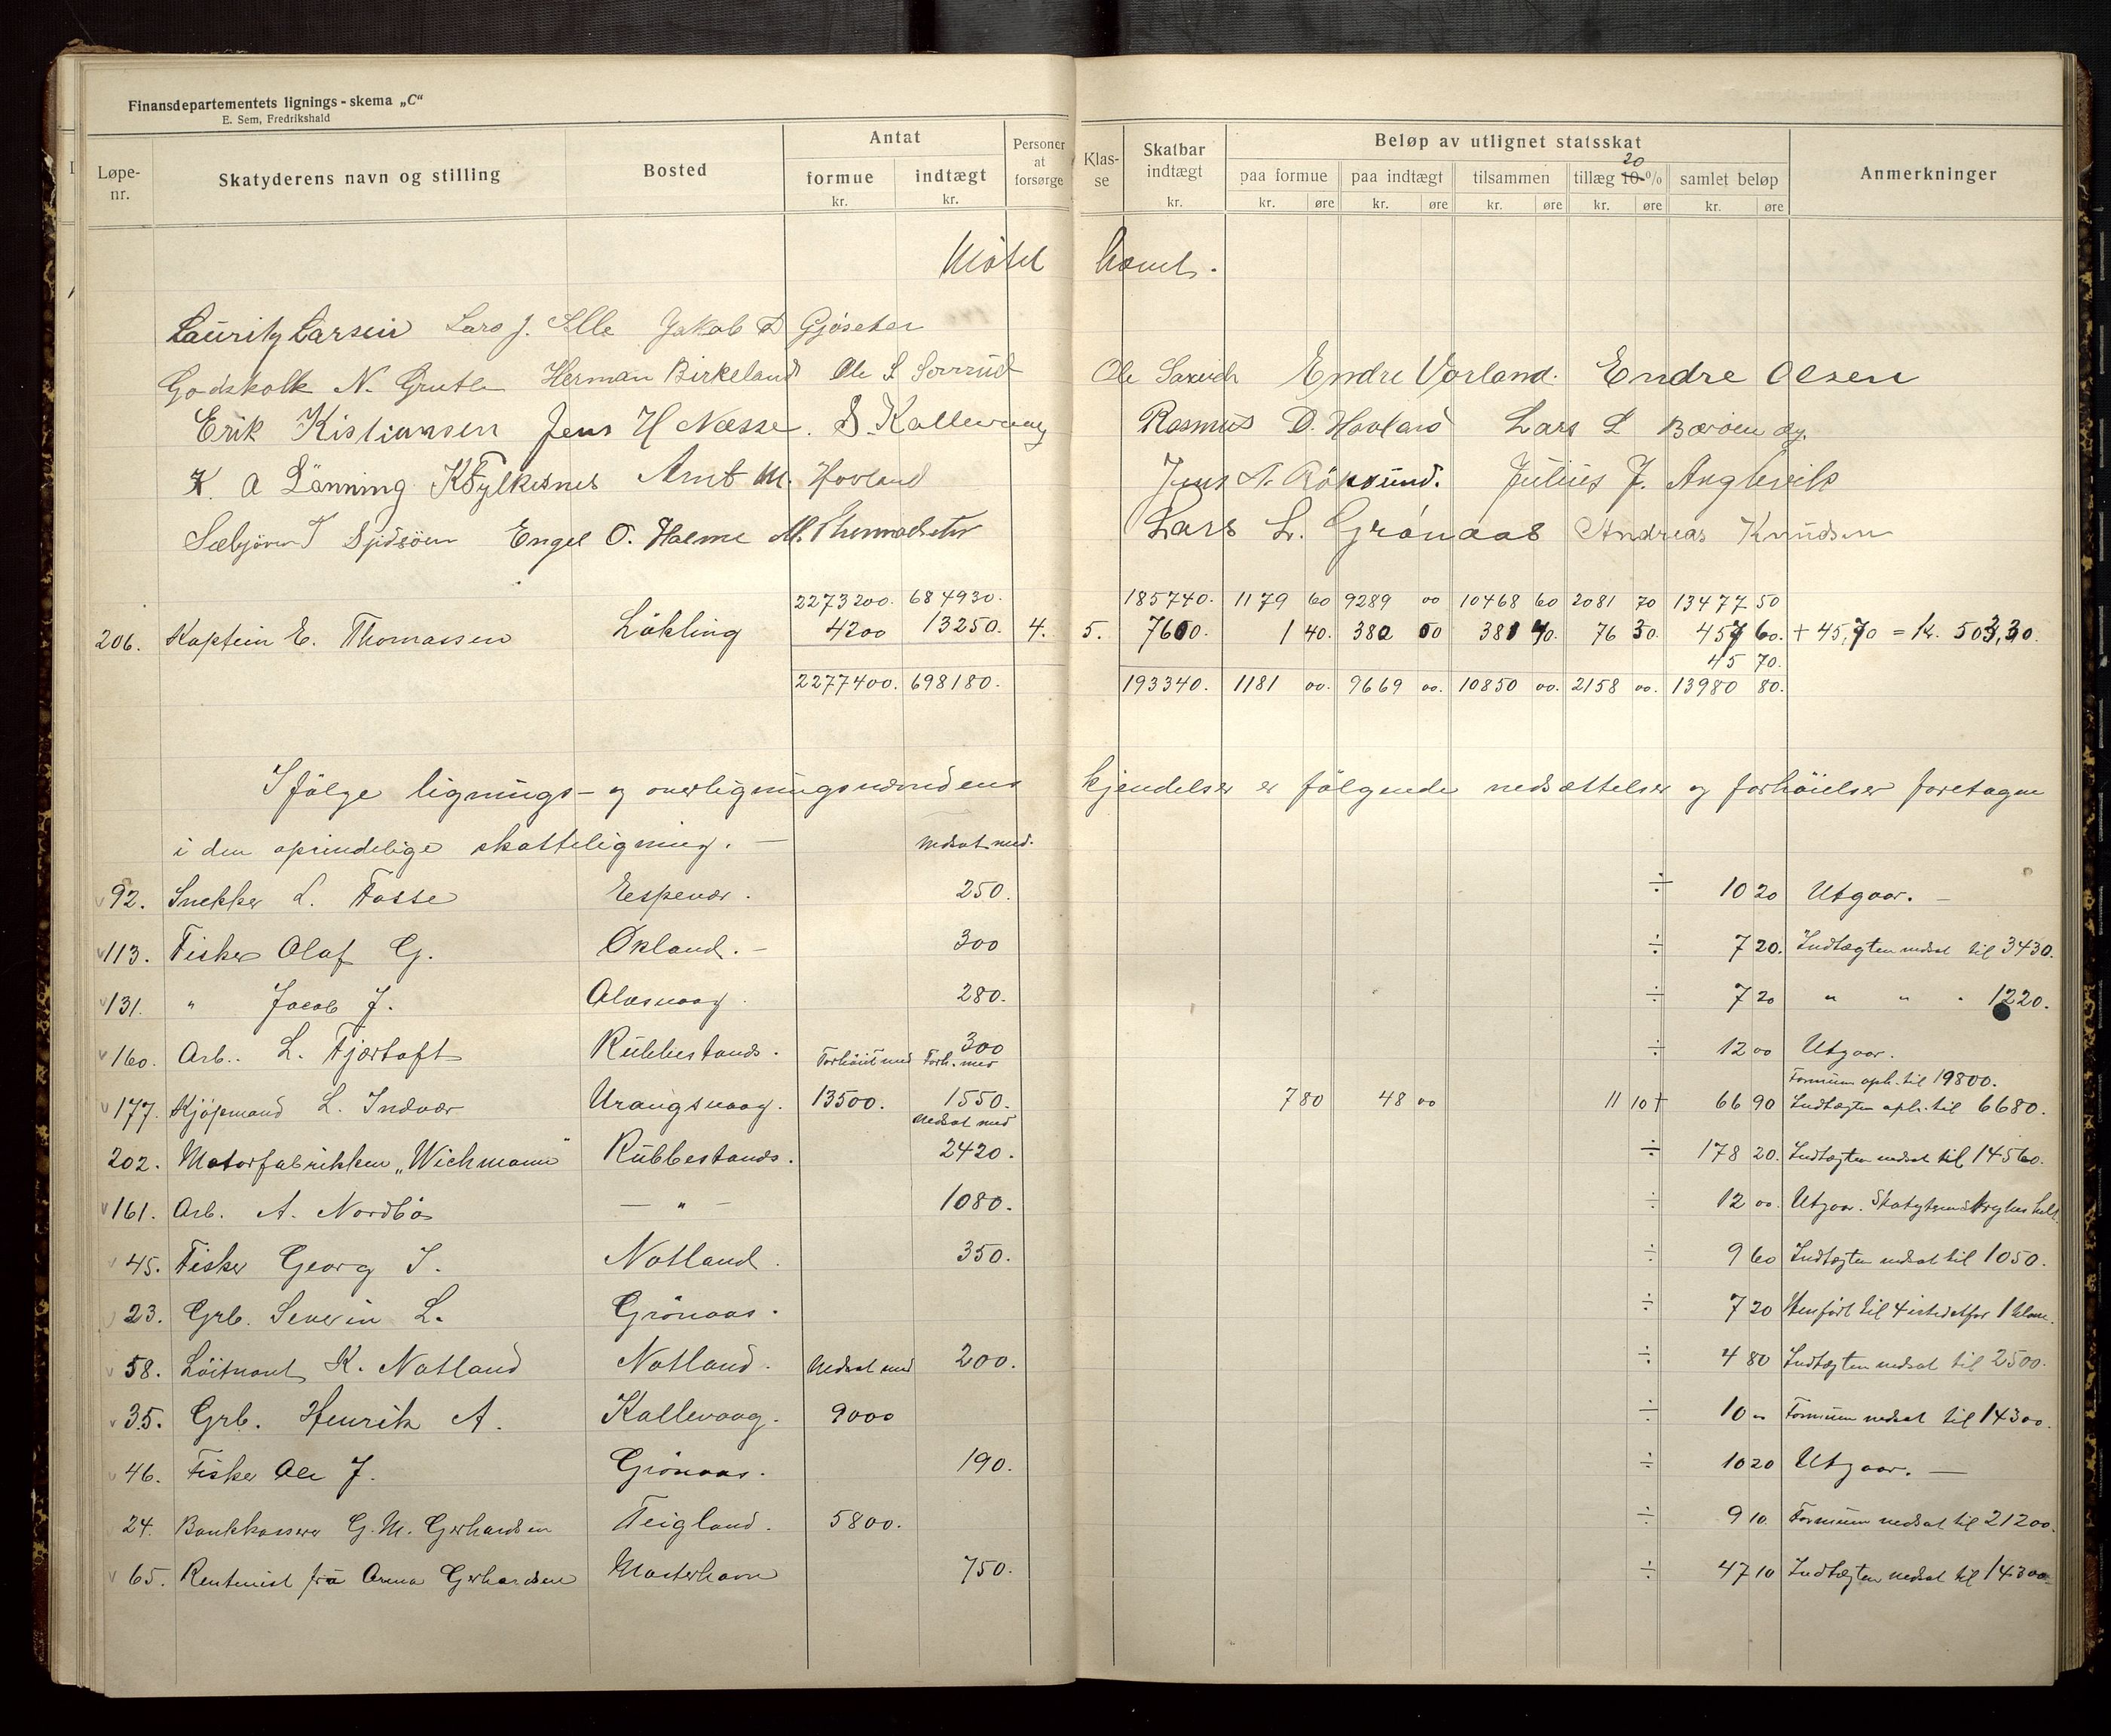 Finansdepartementets lignings-skema „C“
E. Sem, Fredrikshald
Løpe-nr. Skatyderens navn og stilling Bosted Antat formue kr. indtægt kr. Personer at forsørge Klas-se Skatbar indtægt kr. Beløp av utlignet statsskat paa formue kr. øre paa indtægt kr. øre tilsammen kr. øre tillæg 10 20 % kr. øre samlet beløp kr. øre Anmerkninger
Møtet hævet.
Lauritz Larsen Lars J. Gjøseter
Godskalk N. Grutle Herman Birkeland Ole S Ole Endre Vorland. Endre Olsen
Erik Kistiansen Jens H Næsse. S. Kallevaag Rasmus D. Hovland Lars L Børøen
K. A Lönning K Fylkesnes Arnt M. Hovland Jens N. Röksund. Julius J. Anglevik
T Engel O. Holme M. Lars L. Grönaas Andreas Knudsen
2273200. 684930. 185740. 1179 60 9289 00 10468 60 2081 70 13477 50
206. Kaptein E. Thomassen Lökling 4200 13250. 4. 5. 7600. 1 40. 380 00 381 40. 76 30. 457 60. + 45,70 = Kr. 503,30.
45 70.
2277400. 698180. 193340. 1181 00. 9669 00. 10850 00. 2158 00. 13980 80.
Ifölge lignings- og overligningsnævndens kjendelser er fölgende nedsættelser og forhöielser foretagne
i den oprindelige skatteligning. — Nedsat med.
92. Snekker L. Fosse Espevær. 250. ÷ 10 20 Utgaar. —
113. Fisker Olaf G. Økland. — 300 ÷ 7 20. Indtægten nedsat til 3430.
131. " Jacob J. Alvsvaag. 280. ÷ 7 20 " " " 1220.
160. Arb. L. Fjærtoft Rubbestads. 300 ÷ 12 00 Utgaar.
Forhöiet med Forh. med Formuen oph. til 19800.
177. Kjöpmand L. Indvær Urangsvaag. 13500. 1550. 7 80 48 00 11 10 + 66 90 Indtægten oph. til 6680.
Nedsat med
202. Motorfabrikken „Wichmann“ Rubbestads. 2420. ÷ 178 20. Indtægten nedsat til 14560.
161. Arb. A. Nordbö — " — 1080. ÷ 12 00. Utgaar. Skatyteren strykes helt.
45. Fisker Georg J. Notland. 350. ÷ 9 60 Indtægten nedsat til 1050.
23. Grb. Severin L. Grönaas. ÷ 7 20 Henfört til 4 istedetfor 1 klasse.
58. Löitnant K. Notland Notland. Nedsat med 200. ÷ 4 80 Indtægten nedsat til 2500.
35. Grb. Henrik A. Kallevaag. 9000 ÷ 10 00 Formuen nedsat til 14300.
46. Fisker Ole J. Grönaas. 190. ÷ 10 20 Utgaar. —
24. Bankkasserer G. M. Gerhardsen Teigland. 5800. ÷ 9 10. Formuen nedsat til 21200.
65. Rentenist fru Anna Gerhardsen Mosterhavn 750. ÷ 47 10 Indtægten nedsat til 14300.